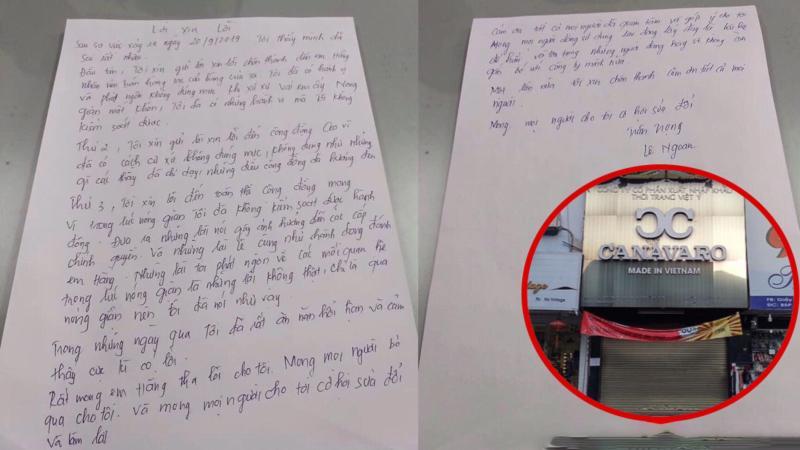 Lời xin Lỗi
Sau sự việc xảy ra ngày 20/9/2019 Tôi thấy mình đã
sai rất nhiều.
Đầu tiên, Tôi xin gửi lời xin lỗi chân thành đến em Hằng
Nhân viên bán hàng tại cửa hàng của tôi. Tôi đã có hành vi
và phát ngôn không đúng mực khi xử xử với em ấy. Nóng
giận mất khôn, Tôi đã có những hành vi mà tôi không
kiểm soát được.
Thứ 2, Tôi xin gửi lời xin lỗi đến cộng đồng. Cao vì
đã có cách cư xử không đúng mực, không đúng như những
gì các thầy đã chỉ dạy, những điều cộng đồng đã hướng đến
Thứ 3, Tôi xin lỗi đến toàn thể cộng đồng mạng
vì trong lúc nóng giận Tôi đã không kiểm soát được hành
động. Đưa ra những lời nói gây ảnh hưởng đến các cấp
chính quyền. Và những lời lẽ cũng như hành động đánh
em Hằng. Những lời tôi phát ngôn về các mối quan hệ
trong lúc nóng giận là những lời không thật, chỉ là quá
nóng giận nên tôi đã nói như vậy.
Trong những ngày qua Tôi đã rất ăn năn hối hận và cảm
thấy cực kì có lỗi.
Rất mong em Hằng tha lỗi cho tôi. Mong mọi người bỏ
qua cho tôi. Và mong mọi người cho tôi cơ hội sửa đổi
và làm lại
Cảm ơn tất cả mọi người đã quan tâm và góp ý cho tôi
Mong mọi người đừng sử dụng lao động
những người đang hay sẽ không còn
gắn bó với công ty mình nữa.
Một lần nữa tôi xin chân thành cảm ơn tất cả mọi
người.
Mong mọi người cho tôi cơ hội sửa đổi
Trân trọng
Lê Ngoan
CÔNG TY CỔ PHẦN XUẤT NHẬP KHẨU
THỜI TRANG VIỆT Ý
CANAVARO
MADE IN VIETNAM